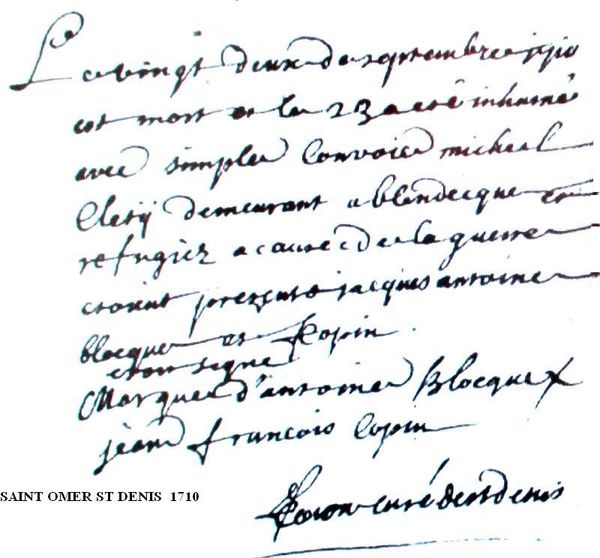 Le vingt deux de septembre 1710
est mort et le 23 a eté inhumé
avec simple convoie michael
Clety demeurant a blendecque et
refugiez a cause de la guerre
etoient presents jacques antoine
blocque et Copin
et ont signe
Marque d'antoine Blocque X
jean francois Copin
curé de st denis
SAINT OMER ST DENIS 1710